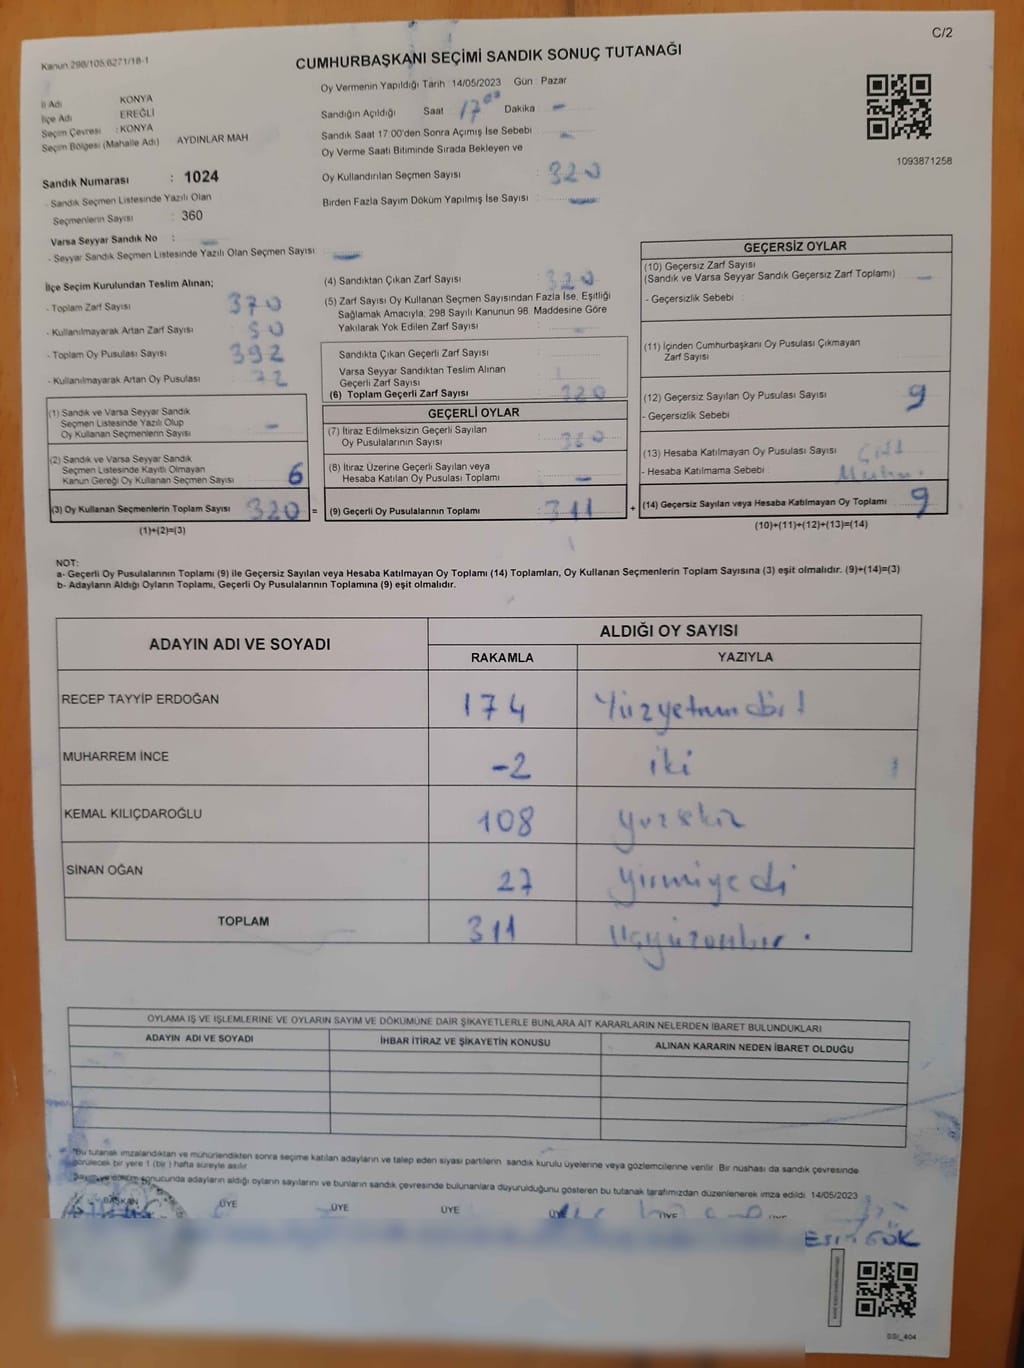 C/2
Kanun 298/105;6271/18-1
CUMHURBAŞKANI SEÇİMİ SANDIK SONUÇ TUTANAĞI
İl Adı KONYA
İlçe Adı EREĞLİ
Seçim Çevresi : KONYA
Seçim Bölgesi (Mahalle Adı) AYDINLAR MAH
Sandık Numarası : 1024
- Sandık Seçmen Listesinde Yazılı Olan
Seçmenlerin Sayısı : 360
Varsa Seyyar Sandık No : -
- Seyyar Sandık Seçmen Listesinde Yazılı Olan Seçmen Sayısı: -
Oy Vermenin Yapıldığı Tarih 14/05/2023 Gün Pazar
Sandığın Açıldığı Saat 17⁰⁰ Dakika -
Sandık Saat 17:00'den Sonra Açımış İse Sebebi -
Oy Verme Saati Bitiminde Sırada Bekleyen ve
Oy Kullandırılan Seçmen Sayısı : 320
Birden Fazla Sayım Döküm Yapılmış İse Sayısı -
1093871258
İlçe Seçim Kurulundan Teslim Alınan;
- Toplam Zarf Sayısı 370
- Kullanılmayarak Artan Zarf Sayısı 50
- Toplam Oy Pusulası Sayısı 392
- Kullanılmayarak Artan Oy Pusulası 72
(1) Sandık ve Varsa Seyyar Sandık
Seçmen Listesinde Yazılı Olup
Oy Kullanan Seçmenlerin Sayısı -
(2) Sandık ve Varsa Seyyar Sandık
Seçmen Listesinde Kayıtlı Olmayan
Kanun Gereği Oy Kullanan Seçmen Sayısı 6
(3) Oy Kullanan Seçmenlerin Toplam Sayısı 320 =
(1)+(2)=(3)
(4) Sandıktan Çıkan Zarf Sayısı : 320
(5) Zarf Sayısı Oy Kullanan Seçmen Sayısından Fazla İse, Eşitliği
Sağlamak Amacıyla, 298 Sayılı Kanunun 98. Maddesine Göre
Yakılarak Yok Edilen Zarf Sayısı : -
Sandıkta Çıkan Geçerli Zarf Sayısı :
Varsa Seyyar Sandıktan Teslim Alınan
Geçerli Zarf Sayısı
(6) Toplam Geçerli Zarf Sayısı 320
GEÇERLİ OYLAR
(7) İtiraz Edilmeksizin Geçerli Sayılan
Oy Pusulalarının Sayısı
(8) İtiraz Üzerine Geçerli Sayılan veya
Hesaba Katılan Oy Pusulası Toplamı -
(9) Geçerli Oy Pusulalarının Toplamı : 311 +
GEÇERSİZ OYLAR
(10) Geçersiz Zarf Sayısı
(Sandık ve Varsa Seyyar Sandık Geçersiz Zarf Toplamı) -
- Geçersizlik Sebebi :
(11) İçinden Cumhurbaşkanı Oy Pusulası Çıkmayan
Zarf Sayısı
(12) Geçersiz Sayılan Oy Pusulası Sayısı 9
- Geçersizlik Sebebi :
(13) Hesaba Katılmayan Oy Pusulası Sayısı :
- Hesaba Katılmama Sebebi :
(14) Geçersiz Sayılan veya Hesaba Katılmayan Oy Toplamı 9
(10)+(11)+(12)+(13)=(14)
NOT:
a- Geçerli Oy Pusulalarının Toplamı (9) ile Geçersiz Sayılan veya Hesaba Katılmayan Oy Toplamı (14) Toplamları, Oy Kullanan Seçmenlerin Toplam Sayısına (3) eşit olmalıdır. (9)+(14)=(3)
b- Adayların Aldığı Oyların Toplamı, Geçerli Oy Pusulalarının Toplamına (9) eşit olmalıdır.
ADAYIN ADI VE SOYADI
ALDIĞI OY SAYISI
RAKAMLA YAZIYLA
RECEP TAYYİP ERDOĞAN 174
MUHARREM İNCE -2 iki
KEMAL KILIÇDAROĞLU 108
SİNAN OĞAN 27 yirmiyedi
TOPLAM 311
OYLAMA İŞ VE İŞLEMLERİNE VE OYLARIN SAYIM VE DÖKÜMÜNE DAİR ŞİKAYETLERLE BUNLARA AİT KARARLARIN NELERDEN İBARET BULUNDUKLARI
ADAYIN ADI VE SOYADI İHBAR İTİRAZ VE ŞİKAYETİN KONUSU ALINAN KARARIN NEDEN İBARET OLDUĞU
*Bu tutanak imzalandıktan ve mühürlendikten sonra seçime katılan adayların ve talep eden siyasi partilerin sandık kurulu üyelerine veya gözlemcilerine verilir. Bir nüshası da sandık çevresinde
görülecek bir yere 1 (bir) hafta süreyle asılır.
Sayım ve döküm sonucunda adayların aldığı oyların sayılarını ve bunların sandık çevresinde bulunanlara duyurulduğunu gösteren bu tutanak tarafımızdan düzenlenerek imza edildi. 14/05/2023
BAŞKAN ÜYE ÜYE ÜYE ÜYE ÜYE
GÖK
SSİ_404